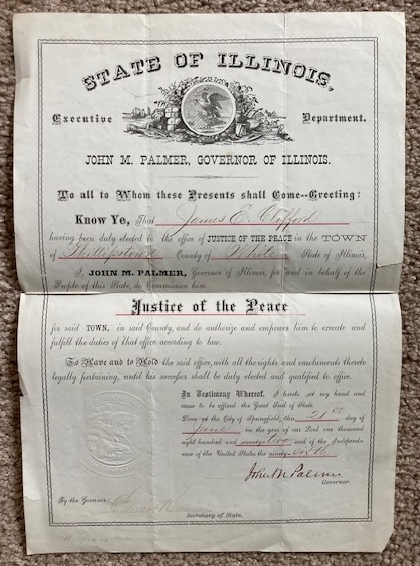 STATE OF ILLINOIS,
Executive Department.
JOHN M. PALMER, GOVERNOR OF ILLINOIS.
To all to Whom these Presents shall Come--Greeting:
Know Ye, That James E. Clifford
having been duly elected to the office of JUSTICE OF THE PEACE in the TOWN
of Phillipstown County of White State of Illinois,
I, JOHN M. PALMER, Governor of Illinois, for and in behalf of the
People of this State, do Commission him
Justice of the Peace
for said TOWN, in said County, and do authorize and empower him to execute and
fulfill the duties of that office according to law.
To Have and to Hold the said office, with all the rights and emoluments thereto
legally pertaining, until his successor shall be duly elected and qualified to office.
In Testimony Whereof, I hereto set my hand and
cause to be affixed the Great Seal of State.
Done at the City of Springfield, this 21st day of
June in the year of our Lord one thousand
eight hundred and seventy-two and of the Independ-
ence of the United States the ninety-sixth
John M Palmer
Governor.
By the Governor:
Secretary of State.